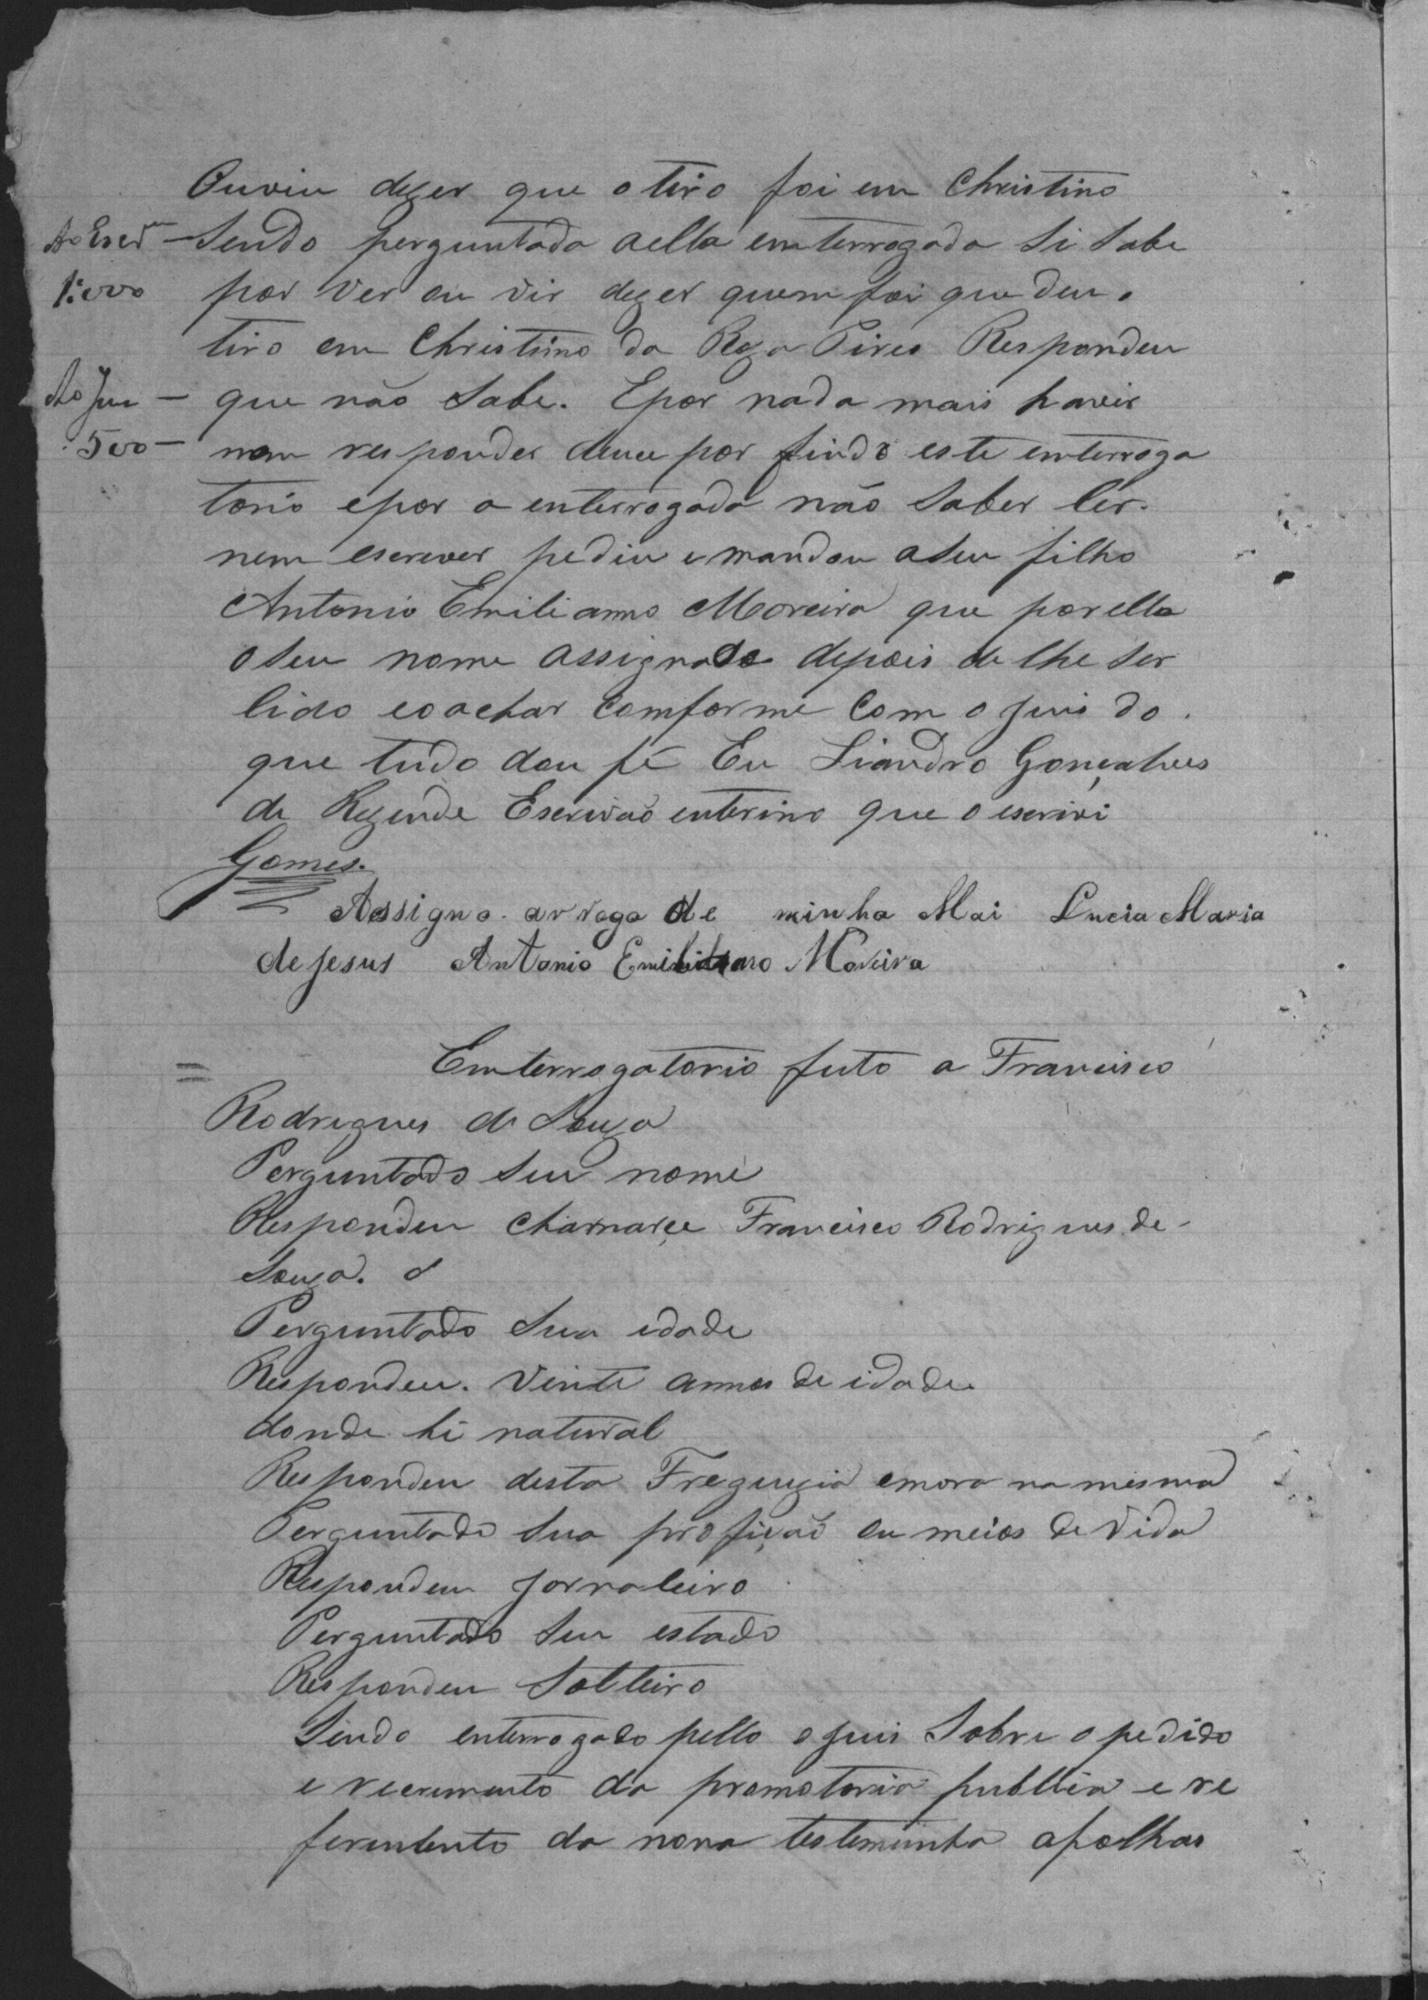 Ouviu dezer que o tiro foi em Christino
Ao Escr.m — Sendo perguntada a ella emterrogada si Sabe
1:000 por ver ou vir dezer quem foi que deu o
tiro em Christino da Roza Pires Respondeu
Ao Juis — que não Sabe. E por nada mais haver
500 — nem responder deuce por findo este emterroga
torio e por a enterrogada não Saber ler
nem escrever pediu e mandou a Seu filho
Antonio Emilianno Moreira que por ella
o Seu nome assignace depois de lhe Ser
lido e o achar comforme Com o Juis do
que tudo dou fé Eu Liandro Gonçalves
de Rezende Escrivão enterino que o escrivi
Gomes.
Assigno arrogo de minha Mai Lucia Maria
de Jesus Antonio Emilianno Moreira
Emterrogatorio feito a Francisco
Rodrigues de Souza
Perguntado Seu nome
Respondeu chamarçe Francisco Rodrigues de
Souza.
Perguntado Sua idade
Respondeu. Vinte annos de idade
donde hé natural
Respondeu desta Freguezia e mora na mesma
Perguntado Sua profição ou meios de Vida
Respondeu Jornaleiro
Perguntado Seu estado
Respondeu Solteiro
Sendo enterrogado pello o Juis Sobre o pedido
e recrimento da promotoria publica e re
ferimento da nona testemunha a folhas